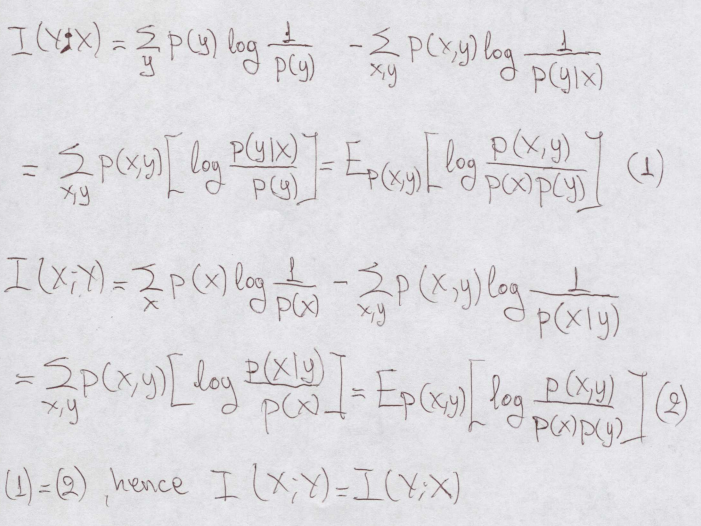 I(Y;X) = Σ_y p(y) log 1/p(y) - Σ_{x,y} p(x,y) log 1/p(y|x)
= Σ_{x,y} p(x,y) [log p(y|x)/p(y)] = E_{p(x,y)} [log p(x,y)/p(x)p(y)] (1)
I(X;Y) = Σ_x p(x) log 1/p(x) - Σ_{x,y} p(x,y) log 1/p(x|y)
= Σ_{x,y} p(x,y) [log p(x|y)/p(x)] = E_{p(x,y)} [log p(x,y)/p(x)p(y)] (2)
(1)=(2), hence I(X;Y)=I(Y;X)